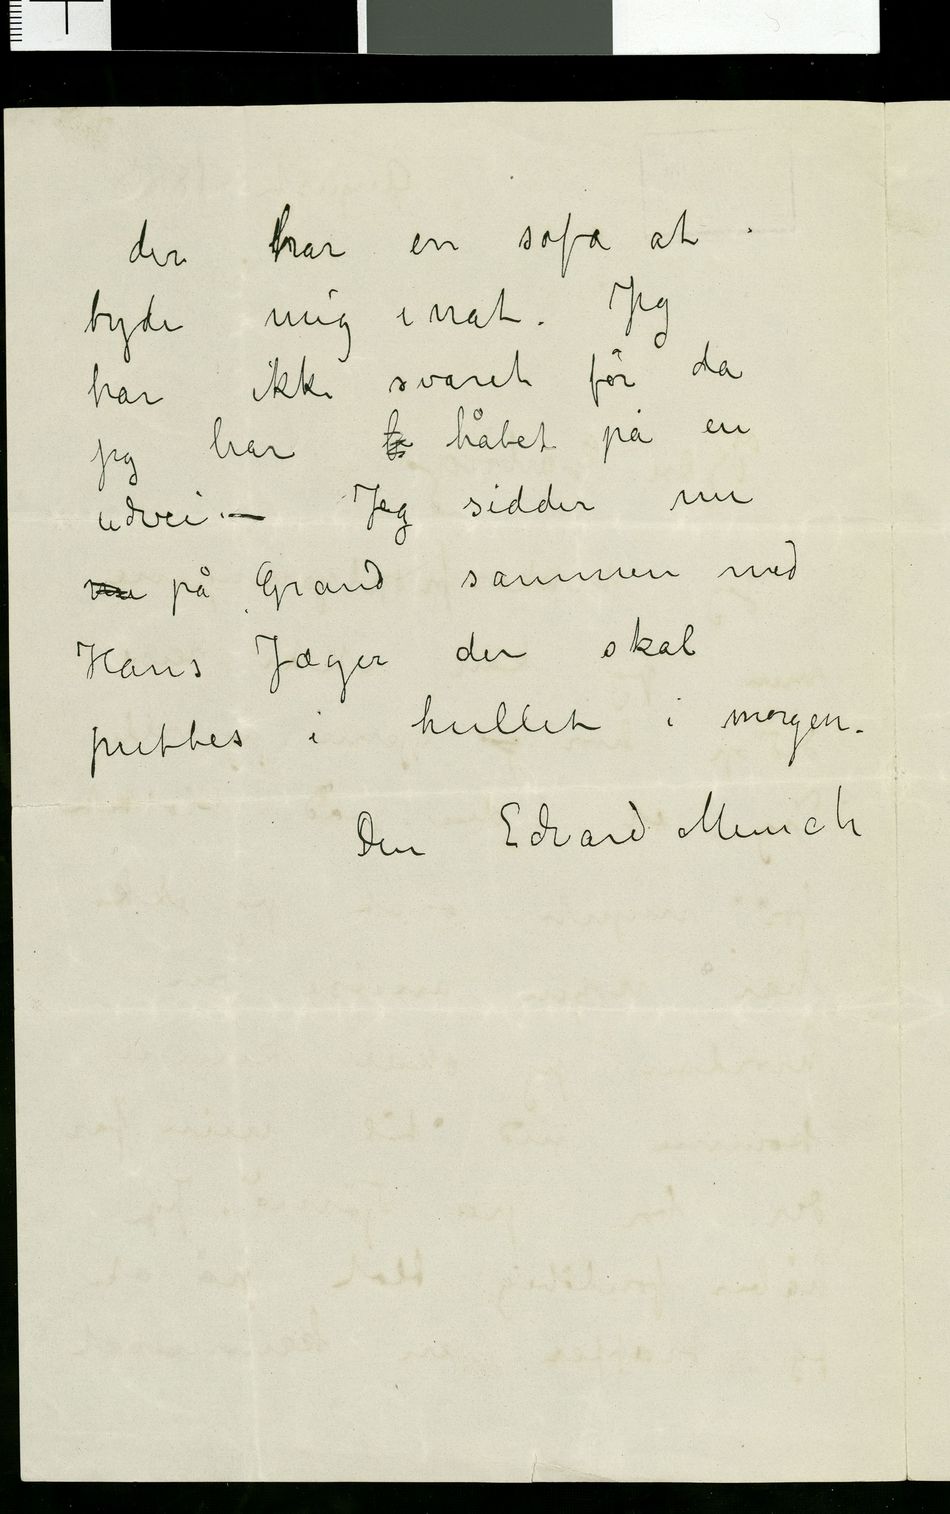 der har en sofa at
byde mig inat. Jeg
har ikke svaret før da
jeg har håbet på en
udvei. — Jeg sidder nu
på Grand sammen med
Hans Jæger der skal
puttes i hullet i morgen.
Din Edvard Munch